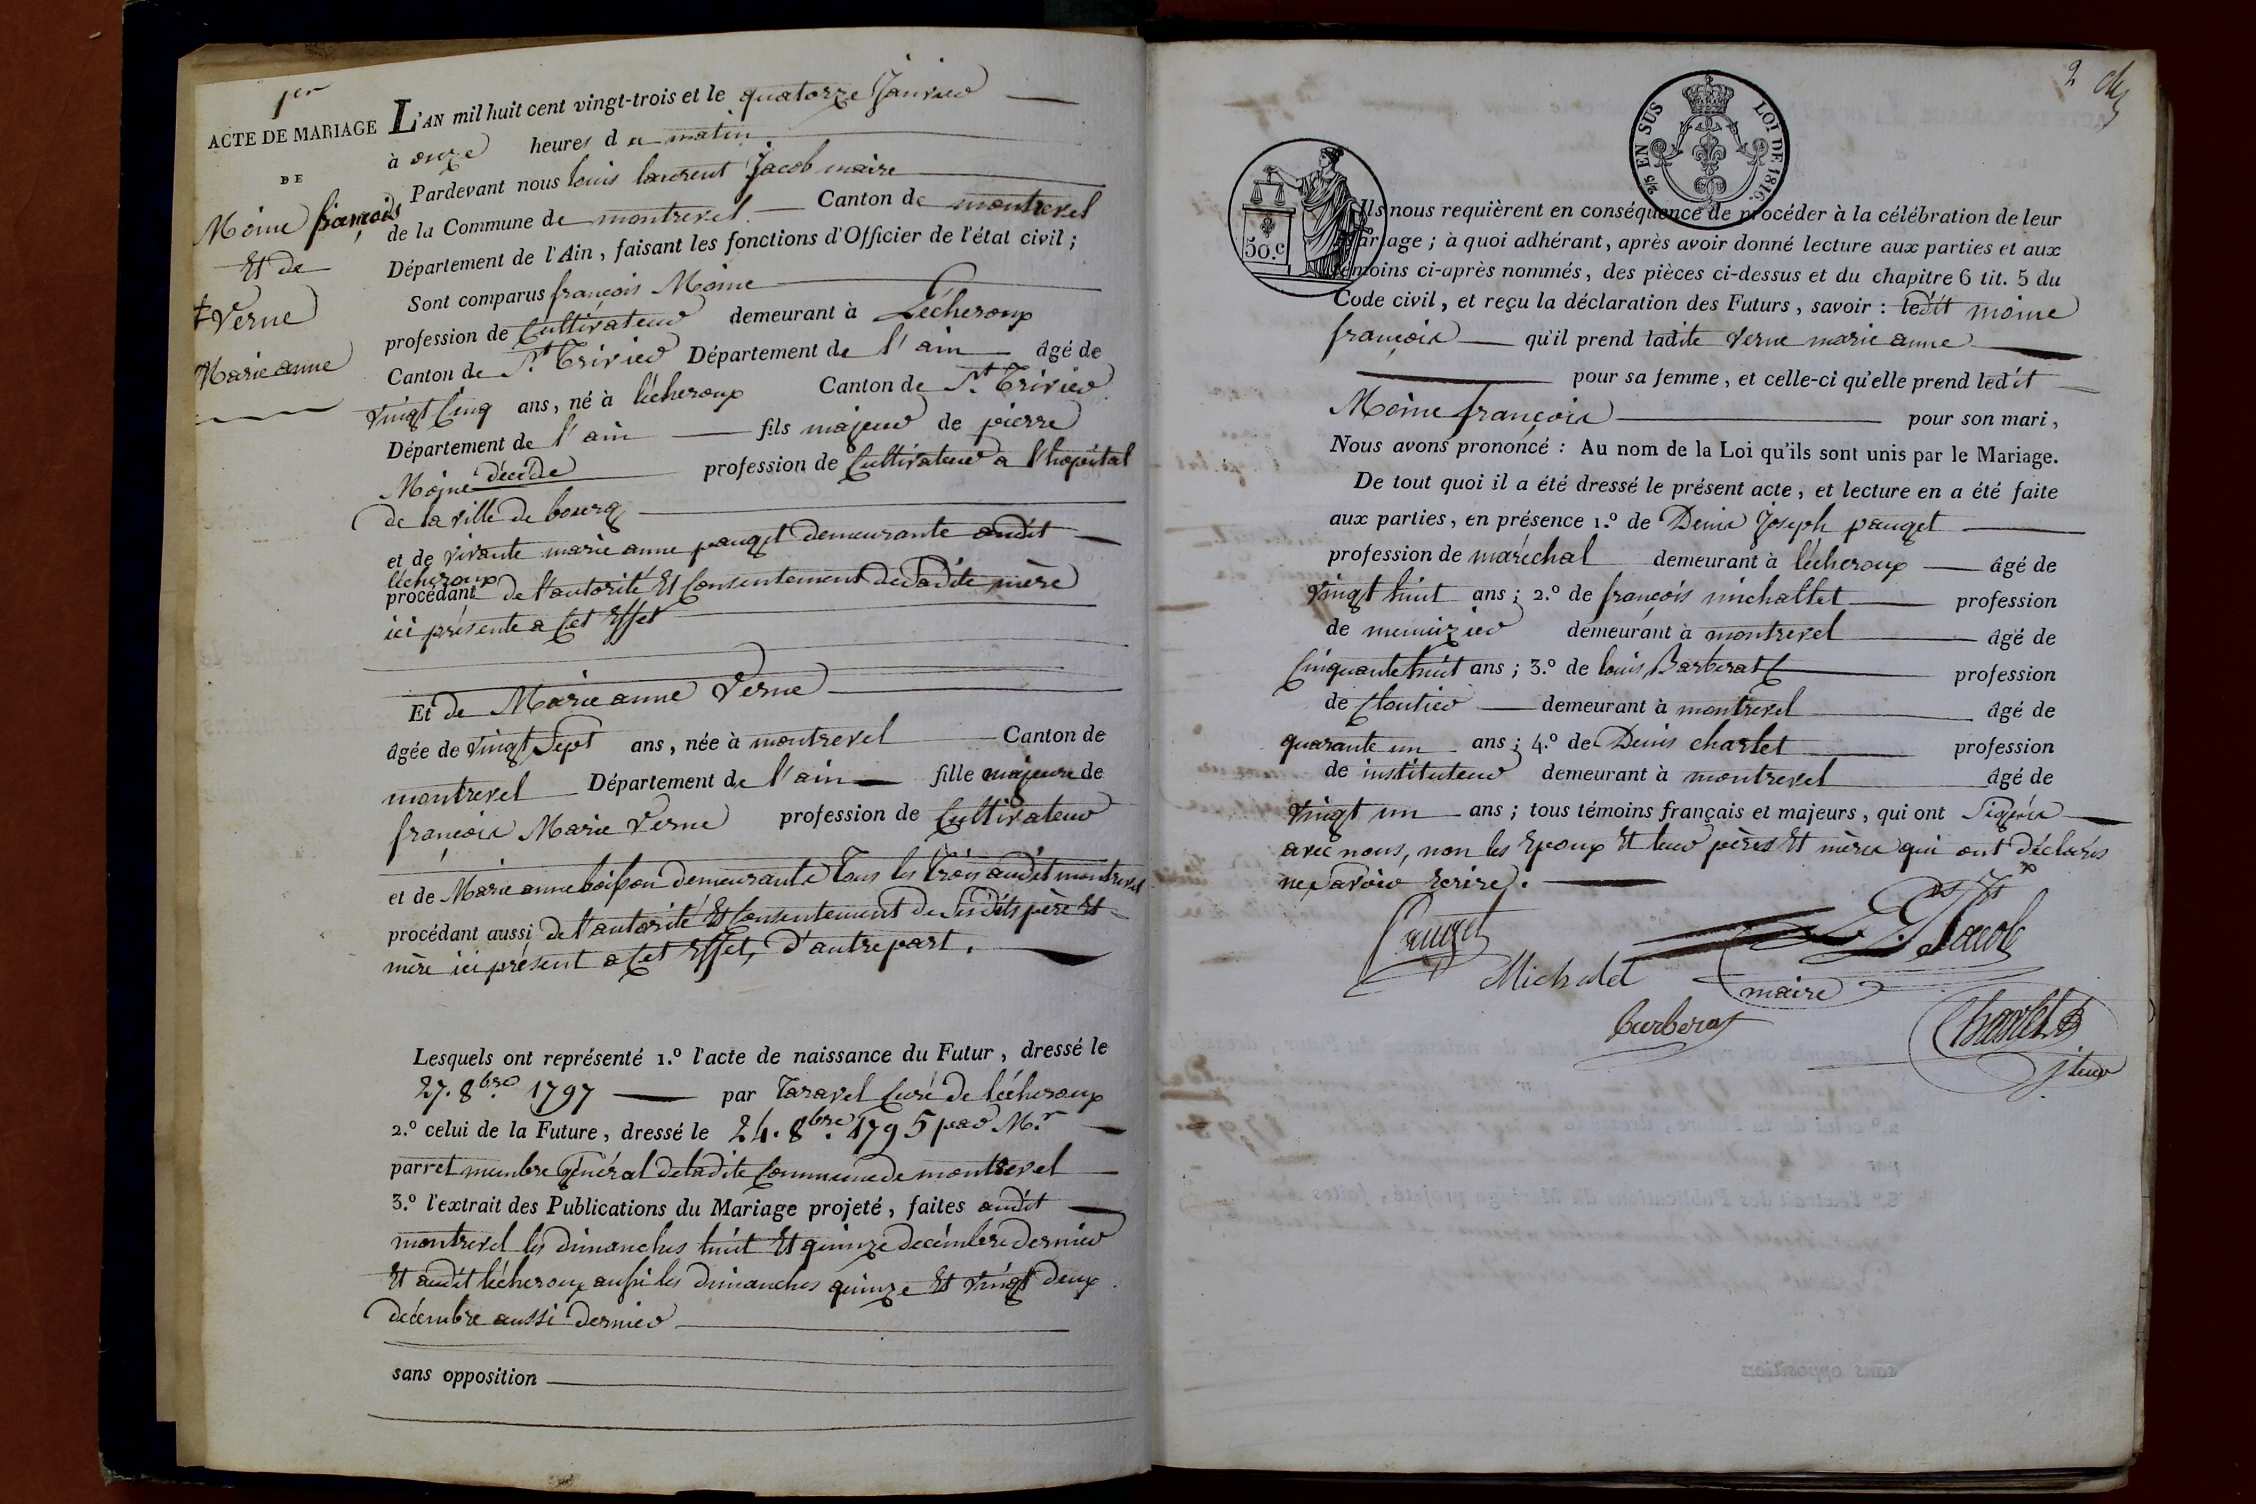 1er
ACTE DE MARIAGE
DE
Moine françois
Et de
Verne
Marie anne
L'AN mil huit cent vingt-trois et le quatorze Janvier
à onze heures du matin
Pardevant nous louis laurent Jacob maire
de la Commune de montrevel Canton de montrevel
Département de l'Ain, faisant les fonctions d'Officier de l'état civil ;
Sont comparus françois Moine
profession de Cultivateur demeurant à Lécheroux
Canton de St. Trivier Département de l'ain âgé de
vingt Cinq ans, né à lécheroux Canton de St. Trivier
Département de l'ain fils majeur de pierre
Moine décédé profession de Cultivateur a l'hopital
de la ville de bourg
et de vivante marie anne pauget demeurante audit
lécheroux
procédant de l'autorité Et Consentement de Sadite mère
ici présente a Cet Effet
Et de Marie anne Verne
âgée de vingt Sept ans, née à montrevel Canton de
montrevel Département de l'ain fille majeure de
françois Marie Verne profession de Cultivateur
et de Marie anne boisson demeurants Tous les Trois audit montrevel
procédant aussi de l'autorité Et Consentement de Sesdits père Et
mère ici présent a Cet Effet, d'autre part.
Lesquels ont représenté 1.º l'acte de naissance du Futur, dressé le
27. 8bre. 1797 par Taravel Curé de lécheroux
2.º celui de la Future, dressé le 24. 8bre. 1795 par Mr.
parret membre général de ladite Commune de montrevel
3.º l'extrait des Publications du Mariage projeté, faites audit
montrevel les dimanches huit Et quinze decémbre dernier
Et audit lécheroux aussi les dimanches quinze Et vingt deux
decémbre aussi dernier
sans opposition
2
2/5 EN SUS LOI DE 1816.
50.c
Ils nous requièrent en conséquence de procéder à la célébration de leur
mariage ; à quoi adhérant, après avoir donné lecture aux parties et aux
témoins ci-après nommés, des pièces ci-dessus et du chapitre 6 tit. 5 du
Code civil, et reçu la déclaration des Futurs, savoir : ledit moine
françois qu'il prend ladite Verne marie anne
pour sa femme, et celle-ci qu'elle prend ledit
Moine françois pour son mari,
Nous avons prononcé : Au nom de la Loi qu'ils sont unis par le Mariage.
De tout quoi il a été dressé le présent acte, et lecture en a été faite
aux parties, en présence 1.º de Denis Joseph pauget
profession de maréchal demeurant à lécheroux âgé de
vingt huit ans ; 2.º de françois michallet profession
de menuizier demeurant à montrevel âgé de
Cinquante huit ans ; 3.º de louis Barberat profession
de Cloutier demeurant à montrevel âgé de
quarante un ans ; 4.º de Denis charlet profession
de instituteur demeurant à montrevel âgé de
vingt un ans ; tous témoins français et majeurs, qui ont Signés
avec nous, non les Epoux Et leur pères Et mères qui ont déclarés
ne Savoir Ecrire.
Pauget
Jacob
Michalet
maire
Barberat
Charlet